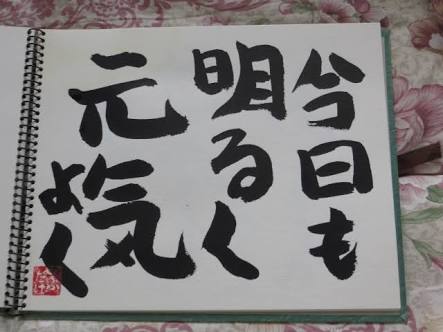 今日も
明るく
元気
よく